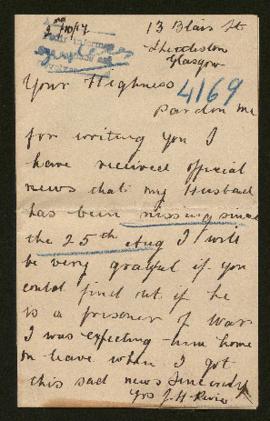 2nd/10/17
13 Blair St
Shettleston
Glasgow
4169
Your Highness
Pardon me
for writing you I
have received official
news that my Husband
has been missing since
the 25th Aug I will
be very grateful if you
could find out if he
is a prisoner of War
I was expecting him home
on leave when I got
this sad news Sincerely
Yrs J. H.